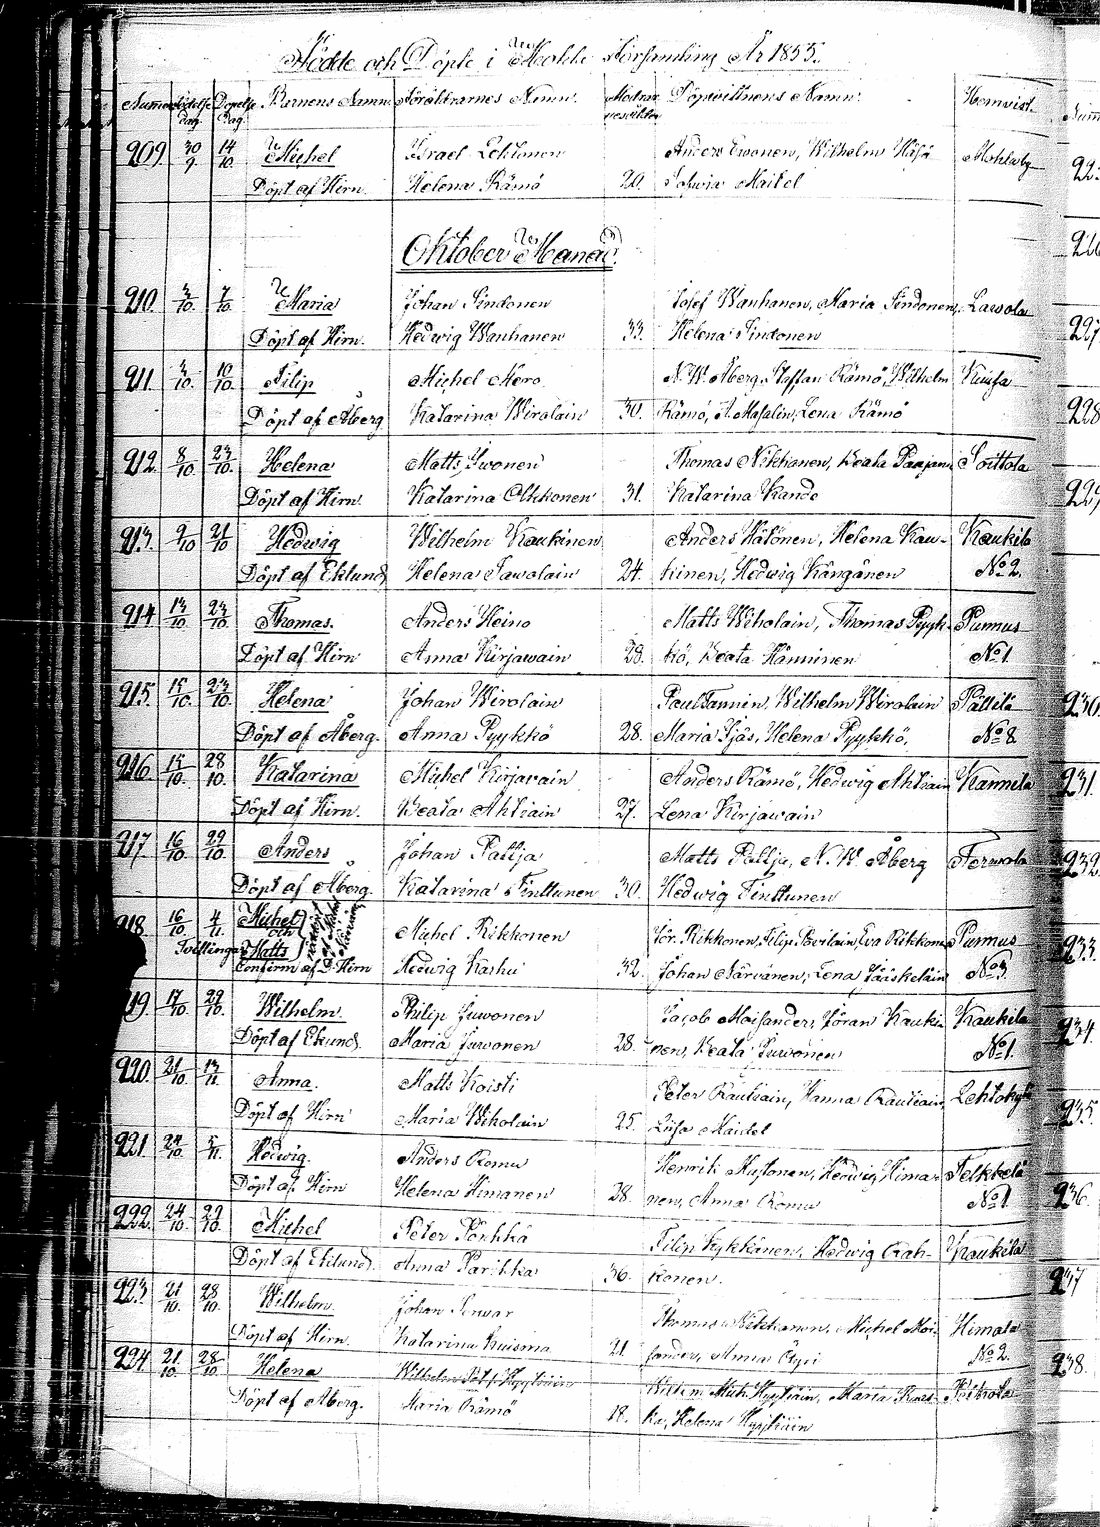 Födde och Döpte i Mohla Församling År 1853.
Numer Födelse dag. Döpelse dag. Barnens Namn Föräldrarnes Namn. Modrens Döpvittnens Namn. Hemvist.
209 30/9 14/10 Michel Israel Lehtonen Anders Ewonen, Wilhelm Mohlaby
Döpt af Hirn. Helena Rämö 20. Sofwia Maidel
Oktober Månad.
210. 3/10. 7/10. Maria Johan Sindonen Josef Wanhanen, Maria Sindonen,
Döpt af Hirn. Hedwig Wanhanen 33. Helena Sindonen
211. 3/10. 10/10. Filip Michel Mero N. W. Åberg, Staffan Rämö, Wilhelm Kuusa
Döpt af Åberg Katarina Wirolain 30. Rämö, A. Masalin, Lena Rämö
212. 8/10. 23/10. Helena Matts Iwonen Thomas Nikkanen, Beata Soittola
Döpt af Hirn. Katarina Olkkonen 31. Katarina Kando
213. 9/10 21/10 Hedwig Wilhelm Kaukinen Anders Hätönen, Helena Kau- Kaukila
Döpt af Eklund Helena Sawolain 24. kinen, Hedwig Kängänen No 2.
214 13/10. 23/10. Thomas. Anders Heino Matts Wiholain, Thomas Pyyk- Punnus
Döpt af Hirn Anna Kirjawain 28. kö, Beata Hänninen No 1.
215. 15/10. 23/10. Helena Johan Wirolain Paul Tannin, Wilhelm Wirolain Pällilä
Döpt af Åberg. Anna Pyykkö 28. Maria Ijäs, Helena Pyykkö, No 8.
216. 15/10. 28/10. Katarina Michel Kirjawain Anders Rämö, Hedwig Ahtiain Kannila
Döpt af Hirn. Beata Ahtiain 27. Lena Kirjawain
217. 16/10. 29/10. Anders Johan Pallja Matts Pallja, N. W. Åberg
Döpt af Åberg. Katarina Tinttunen 30. Hedwig Tinttunen
218. 16/10. 4/11. Michel och Michel Rikkonen Jör. Rikkonen, Filip Eva Rikkonen Punnus
Tvillingar Matts
Confirm af Hirn Hedwig Kashu 32. Johan Närvänen, Lena Jääskeläin No 3.
219. 17/10. 29/10. Wilhelm. Philip Juwonen Jacob Moisander, Jöran Kauki- Kaukila
Döpt af Eklund. Maria Juwonen 28. nen, Beata Juwonen No 1.
220. 21/10. 13/11. Anna. Matts Koisti Peter Rautiain, Hanna Rautiain, Lehtokylä
Döpt af Hirn Maria Wiholain 25. Lisa Maidel
221. 24/10. 5/11. Hedwig. Anders Romu Henrik Hytönen, Hedwig Hima- Telkkelä
Döpt af Hirn Helena Himanen 28. nen, Anna Romu No 1.
222. 24/10. 29/10. Michel Peter Pörhkä Filip Kykkänen, Hedwig Rah- Kaukila
Döpt af Eklund. Anna Parikka 36. konen.
223. 21/10. 28/10. Wilhelm. Johan Thomas Nikkanen, Michel Moi- Himala
Döpt af Hirn. Katarina Kuisma 21. sander, Anna No 2.
224. 21/10. 28/10. Helena Wilhelm Hyytiäin Wilhm Mich. Hyytiäin, Maria
Döpt af Åberg. Maria Rämö 18. ka, Helena Hyytiäin